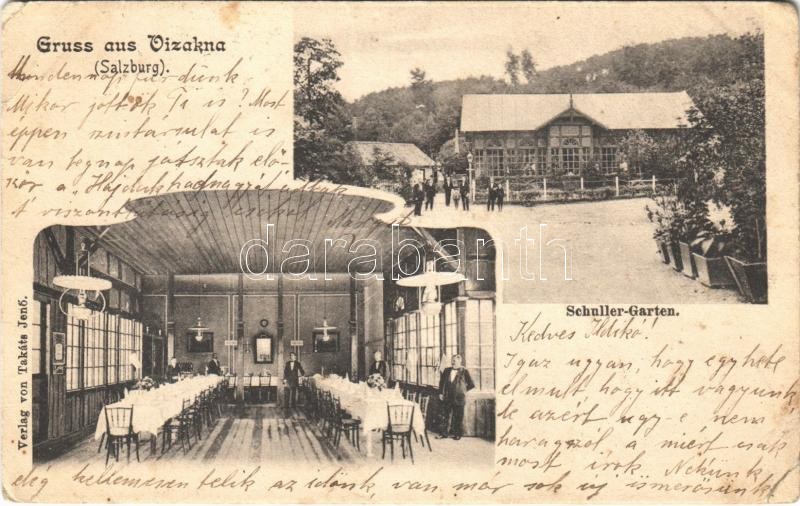 Gruss aus Vizakna
(Salzburg).
Mindennap fürdünk.
Mikor jöttök Ti is? Most
éppen szintársulat is
van tegnap játsztak elő-
ször a "Hajduk hadnagyá
a viszont
darabanth
Schuller-Garten.
Verlag von Takáts Jenő.
Kedves Ildikó!
Igaz ugyan, hogy egy hete
elmult hogy itt vagyunk
de azért ugy-e nem
haragszol a miért csak
most irok. Nekünk
elég kellemesen telik az időnk, van már sok új ismerősünk